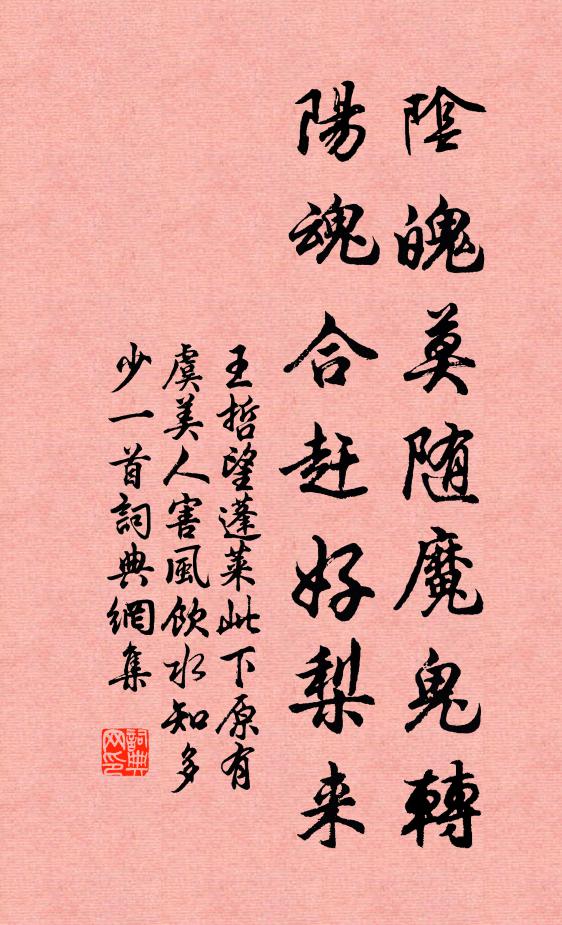 陰魄莫随魔鬼轉
陽魂合赶好梨来
王哲望蓬莱此下原有
虞美人害風飲水知多
少一首詞典網集
詞典
网印